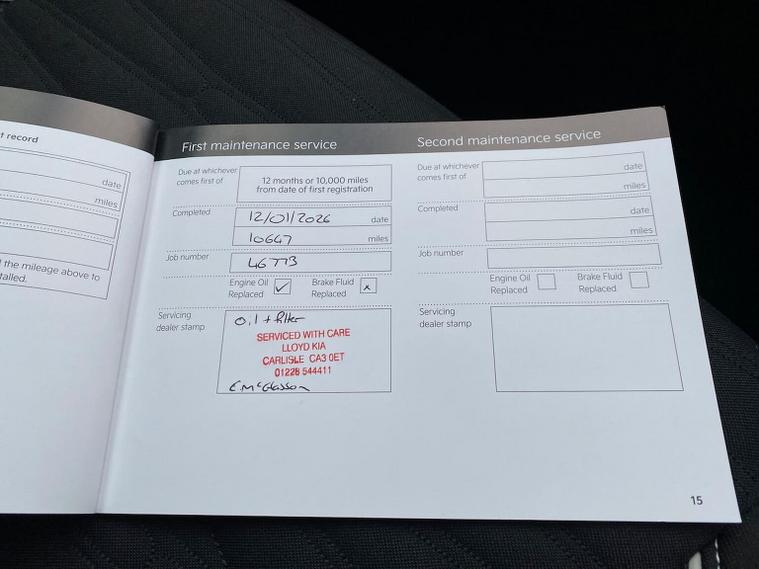 t record
date
miles
the mileage above to
talled.
First maintenance service
Due at whichever
comes first of
12 months or 10,000 miles
from date of first registration
Completed
12/01/2026 date
10667 miles
Job number
46773
Engine Oil
Replaced ✓
Brake Fluid
Replaced x
Servicing
dealer stamp
O,l + filter
SERVICED WITH CARE
LLOYD KIA
CARLISLE CA3 0ET
01228 544411
E.McGlasson
Second maintenance service
Due at whichever
comes first of
date
miles
Completed
date
miles
Job number
Engine Oil
Replaced
Brake Fluid
Replaced
Servicing
dealer stamp
15